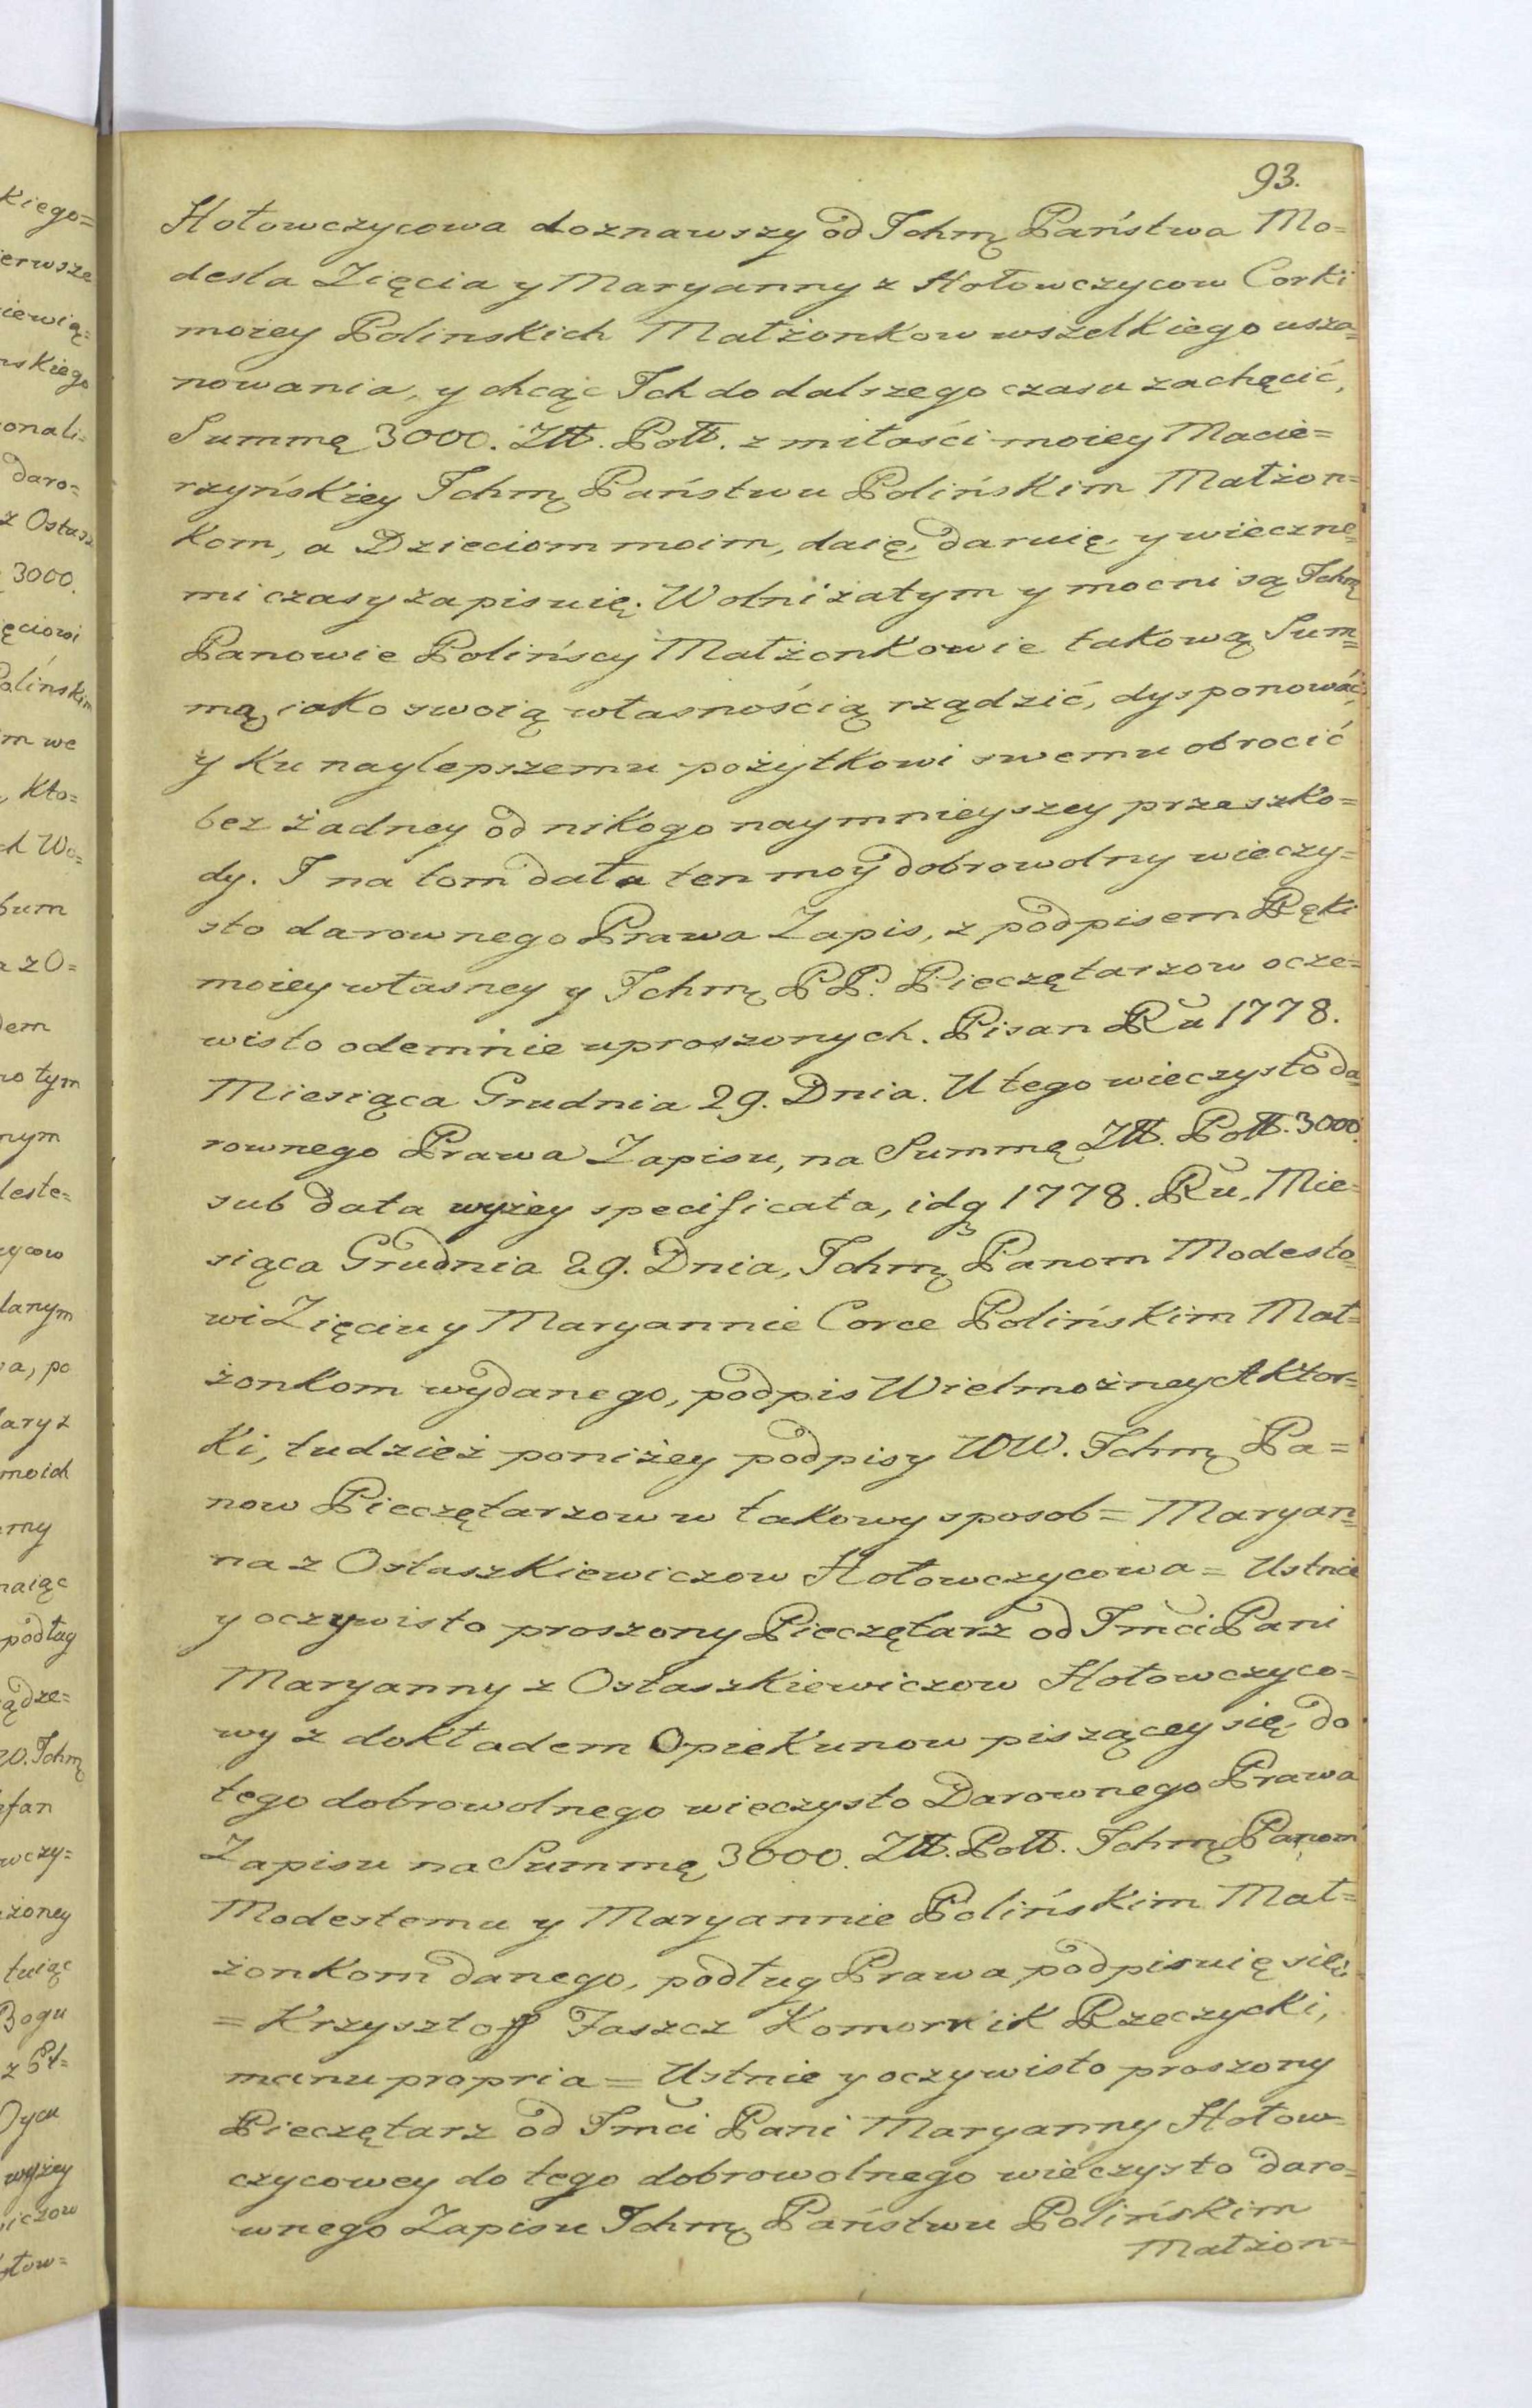 93.
Hołowczycowa doznawszy od Ichmę Państwa Mo=
desta Zięcia y Maryanny z Hołowczycow Corki
moiey Polinskich Małżonkow wszelkiego usza=
nowania, y chcąc Ich do dalszego czasu zachęcić,
Summę 3000. Złł. Poll. z miłości moiey Macie=
rzyńskiey Ichmę Państwu Polińskim Małżon=
kom, a Dzieciom moim, daię, daruię, y wieczne=
mi czasy zapisuię. Wolni zatym y mocni są Ichmę
Panowie Polińscy Małżonkowie takową Sum=
mą, iako swoią własnością rządzić, dysponować,
y ku naylepszemu pożytkowi swemu obrocić
bez żadney od nikogo naymnieyszey przeszko=
dy. I na tom dała ten moy dobrowolny wieczy=
sto darownego Prawa Zapis, z podpisem Ręki
moiey własney y Ichmę PP. Pieczętarzow ocze=
wisto odemnie uproszonych. Pisan Ru 1778.
Miesiąca Grudnia 29. Dnia. U tego wieczysto da=
rownego Prawa Zapisu, na Summę Złł. Poll. 3000.
sub data wyżey specificata, idq 1778. Ru, Mie=
siąca Grudnia 29. Dnia, Ichmę Panom Modesto=
wi Zięciu y Maryannie Corce Polińskim Mał=
żonkom wydanego, podpis Wielmożney Aktor=
ki, tudzież poniżey podpisy WW. Ichmę Pa=
now Pieczętarzow w takowy sposob = Maryan=
na z Ostaszkiewiczow Hołowczycowa = Ustnie
y oczywisto proszony Pieczętarz od Imci Pani
Maryanny z Ostaszkiewiczow Hołowczyco=
wy z dokładem Opiekunow piszącey się, do
tego dobrowolnego wieczysto Darownego Prawa
Zapisu na Summę 3000. Złł. Poll. Ichmę Panom
Modestemu y Maryannie Polińskim Mał=
żonkom danego, podług Prawa podpisuię się,
= Krzysztoff Jaszcz Komornik Rzeczycki,
manu propria = Ustnie y oczywisto proszony
Pieczętarz od Imci Pani Maryanny Hołow=
czycowey do tego dobrowolnego wieczysto daro=
wnego Zapisu Ichmę Państwu Polińskim
Małżon=